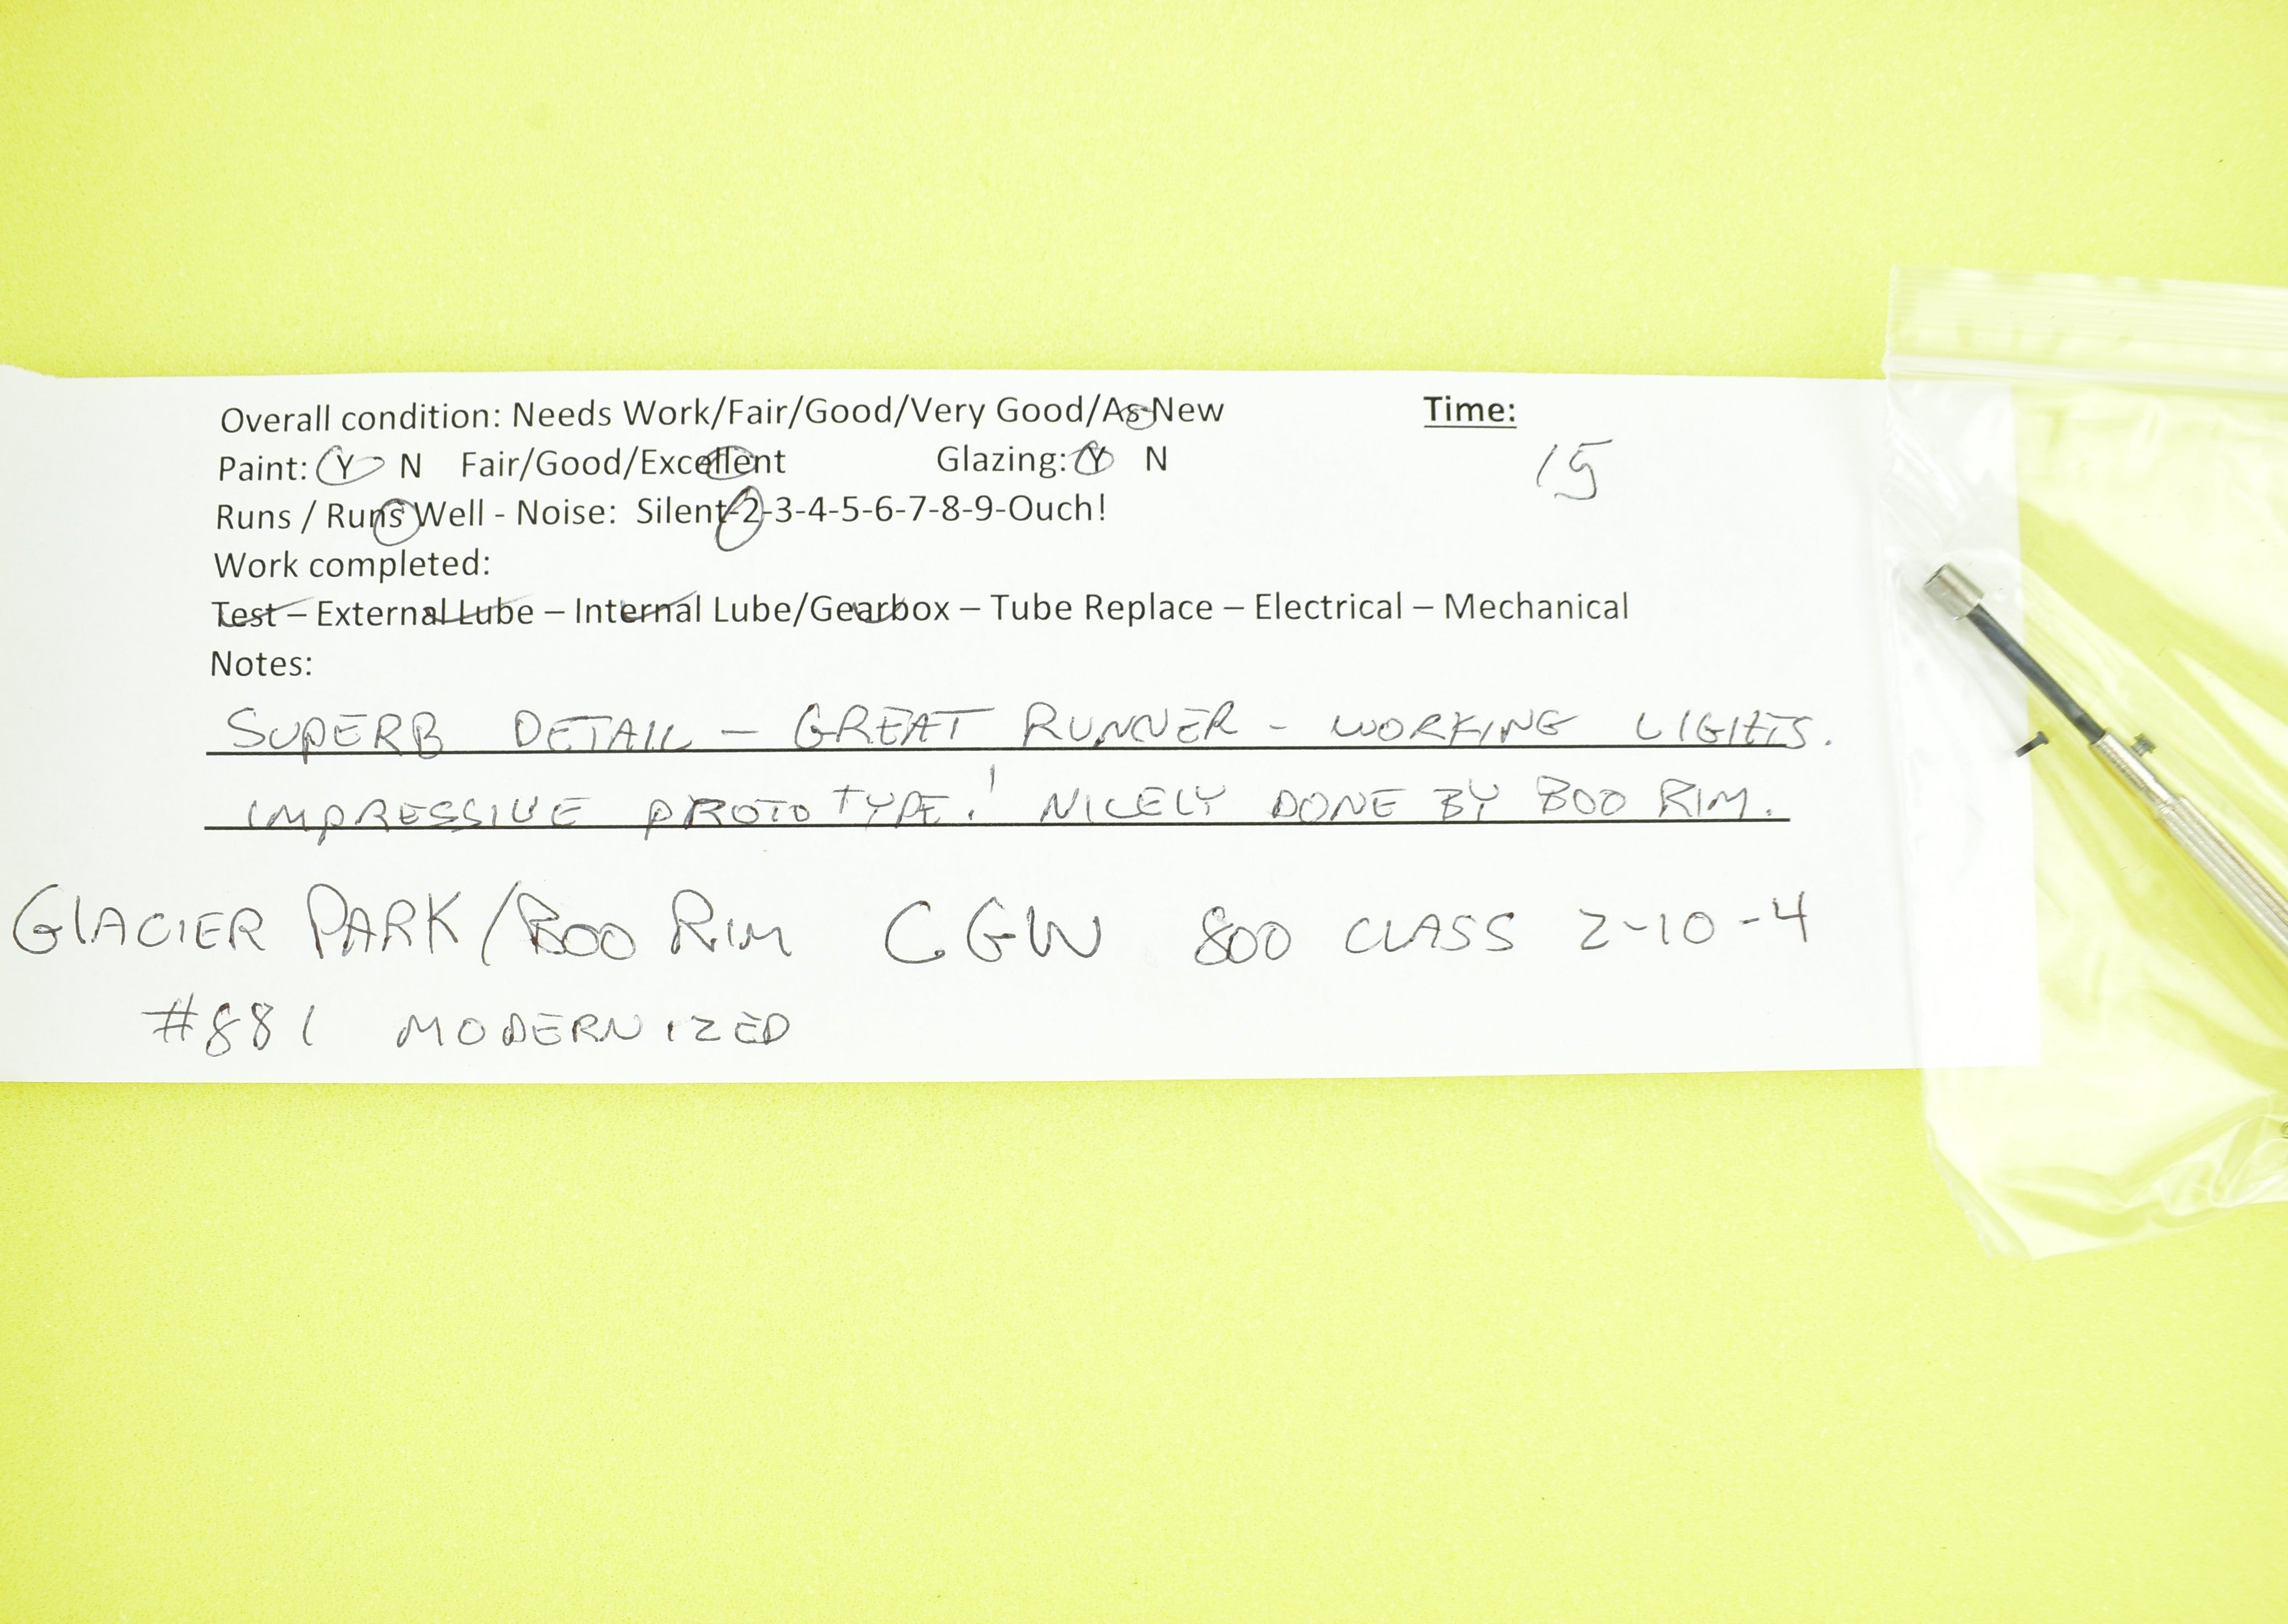 Overall condition: Needs Work/Fair/Good/Very Good/As New
Time:
Paint: Y N Fair/Good/Excellent Glazing: Y N
15
Runs / Runs Well - Noise: Silent-2-3-4-5-6-7-8-9-Ouch!
Work completed:
Test – External Lube – Internal Lube/Gearbox – Tube Replace – Electrical – Mechanical
Notes:
SUPERB DETAIL – GREAT RUNNER - WORKING LIGHTS.
IMPRESSIVE PROTOTYPE! NICELY DONE BY BOO RIM.
GLACIER PARK/BOO RIM CGW 800 CLASS 2-10-4
#881 MODERNIZED